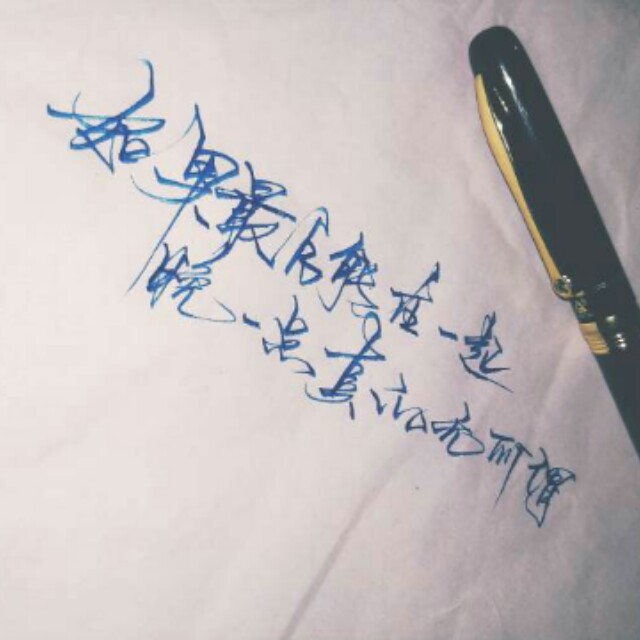 如果最后能在一起
晚一点真的无所谓